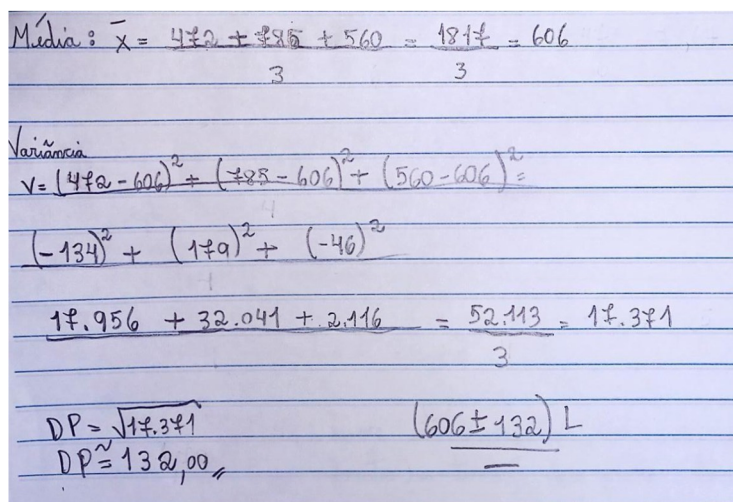 Média: x̄ = 472 + 785 + 560 = 1817 = 606
3 3
Variância
V= (472-606)² + (785-606)² + (560-606)² =
4
(-134)² + (179)² + (-46)²
17.956 + 32.041 + 2.116 = 52.113 = 17.371
3
DP = √17.371 (606 ± 132) L
DP ≅ 132,00